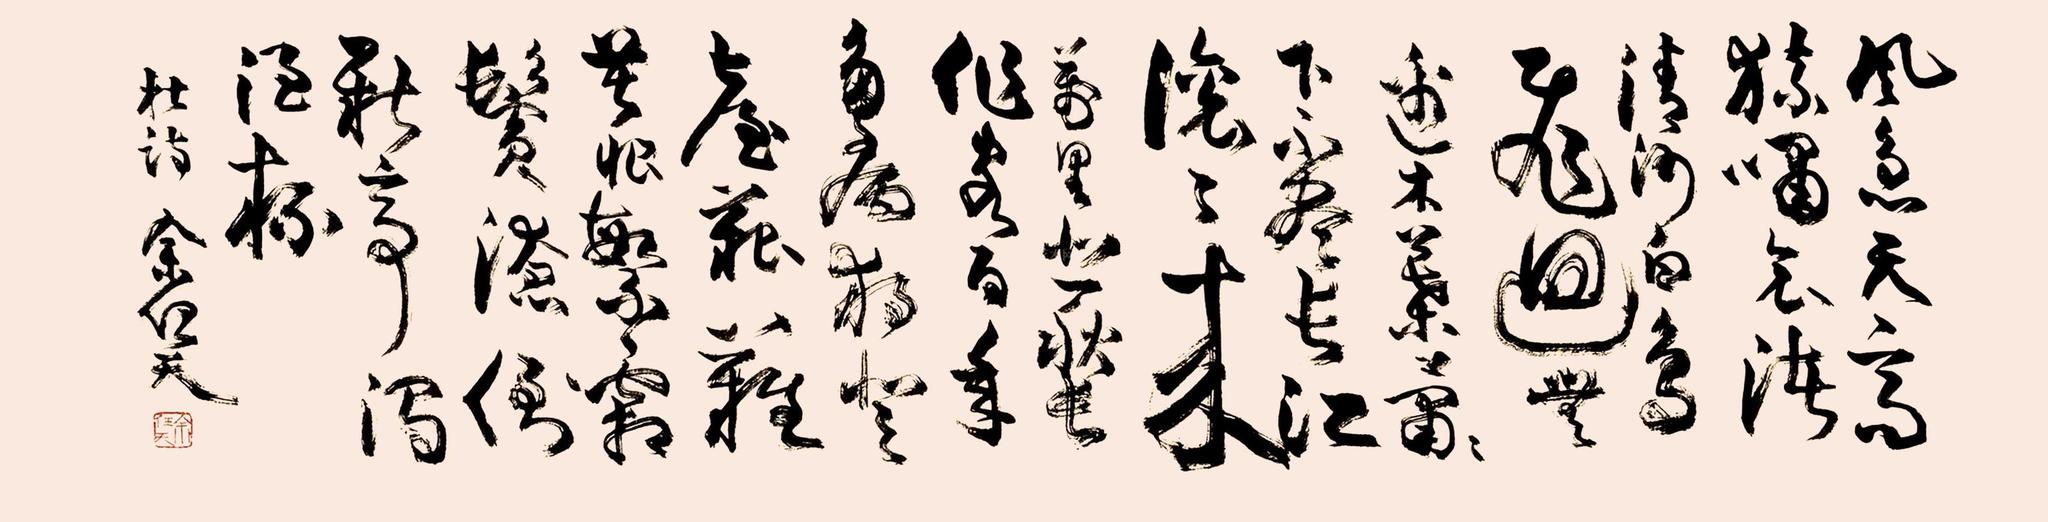 風急天高
猿嘯哀渚
清沙白鳥
飛迴無
邊木葉蕭〻
下不盡長江
滾〻來
萬里悲秋常
作客百年
多病獨登
臺艱難
苦恨繁霜
鬢潦倒
新亭濁
酒杯
杜詩 余任天
余任天